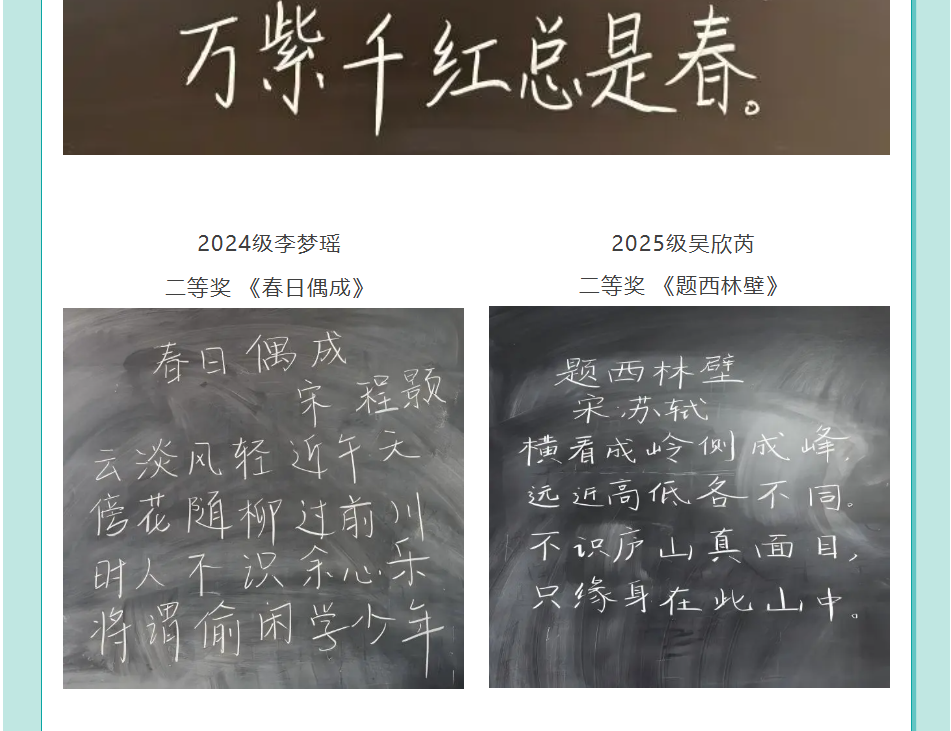 万紫千红总是春。
2024级李梦瑶
二等奖 《春日偶成》
春日偶成
宋 程颢
云淡风轻近午天
傍花随柳过前川
时人不识余心乐
将谓偷闲学少年
2025级吴欣芮
二等奖 《题西林壁》
题西林壁
宋·苏轼
横看成岭侧成峰,
远近高低各不同。
不识庐山真面目,
只缘身在此山中。